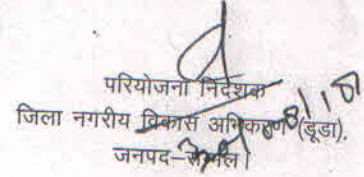 परियोजना निदेशक
जिला नगरीय विकास अभिकरण (डूडा),
जनपद-सम्भल।